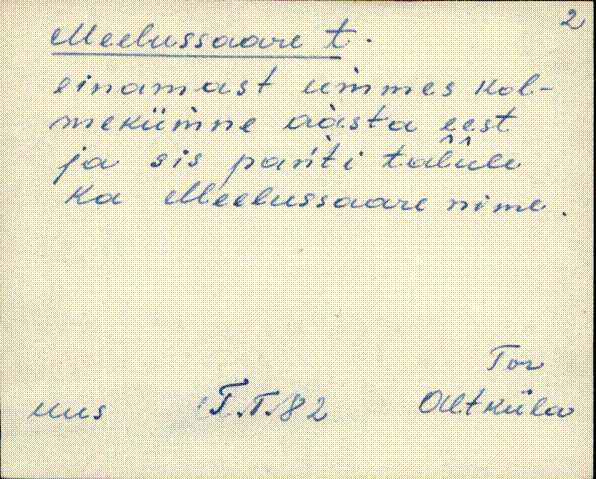 2
Meelussaare t.
einamast ümmes kol-
mekümne aàsta eest
ja sis pańti talûle
ka Meelussaare nime.
Tor
uus T.T.82 Altküla